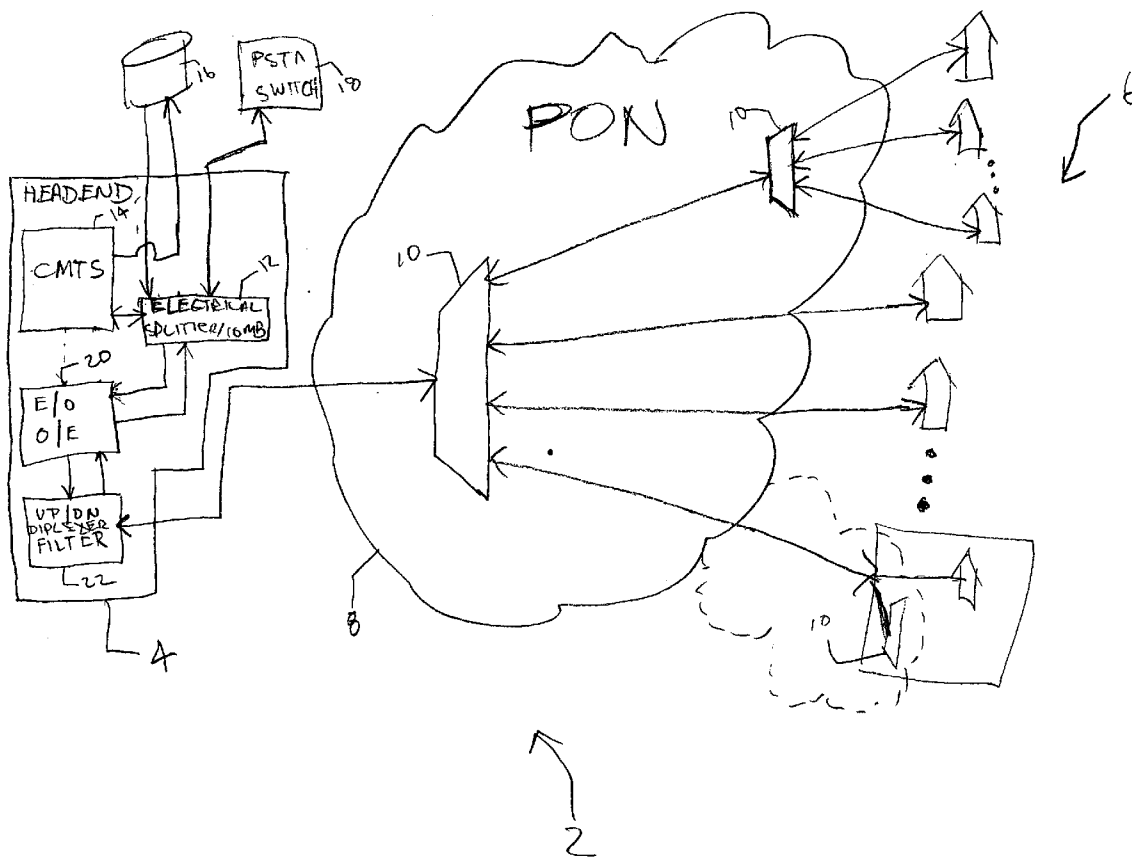 16
PSTN
SWITCH
18
PON
10
6
HEADEND
14
CMTS
12
ELECTRICAL
SPLITTER/COMB
10
20
E/O
O/E
UP/DN
DIPLEXER
FILTER
22
4
8
10
2